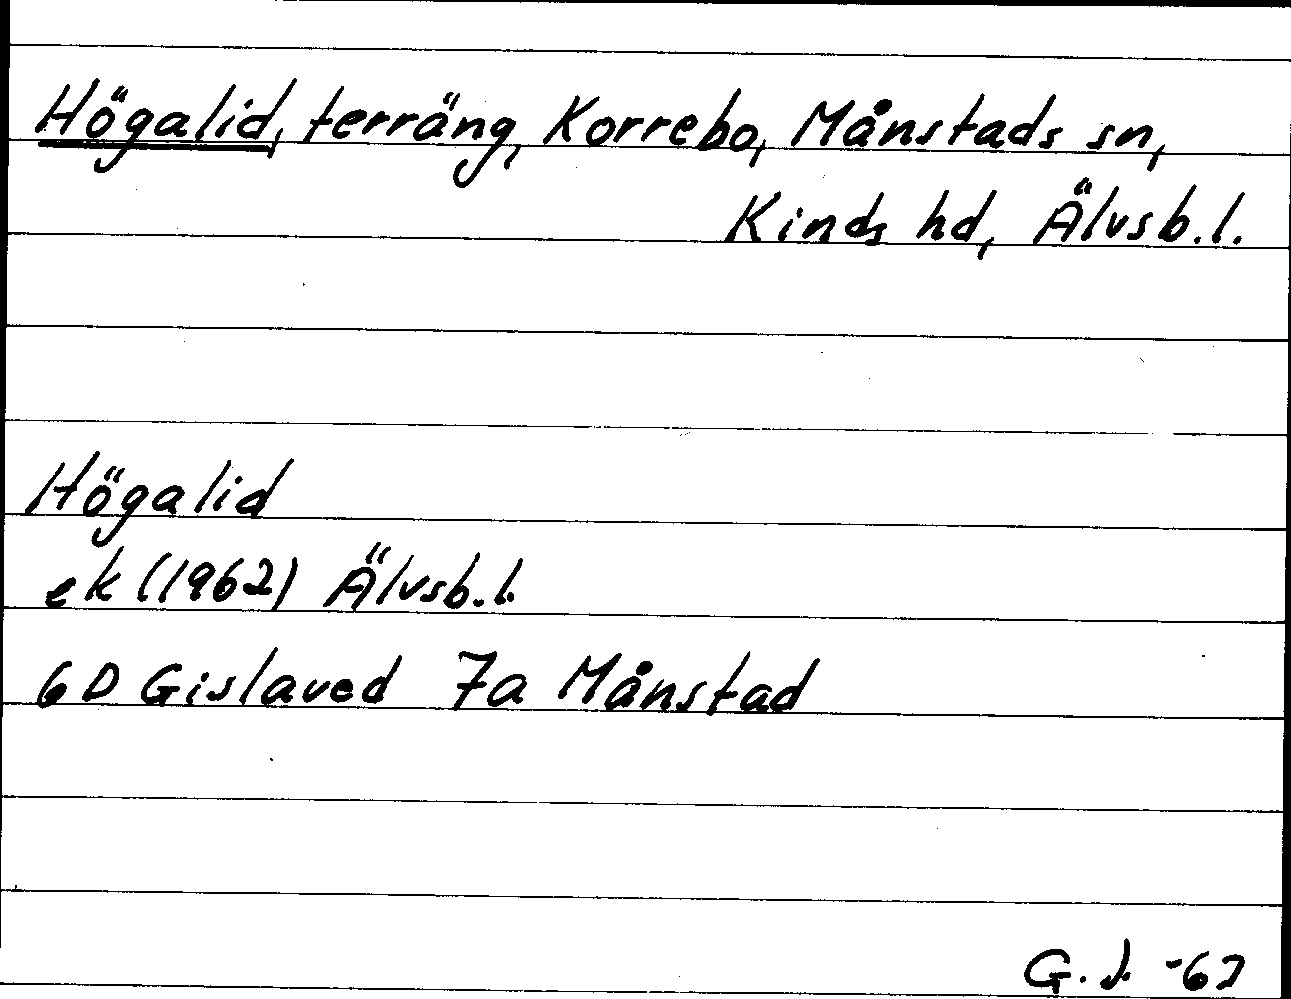 Högalid, terräng, Korrebo, Månstads sn,
Kinds hd, Älvsb.l.
Högalid
ek (1962) Älvsb.l.
6D Gislaved 7a Månstad
G.J.